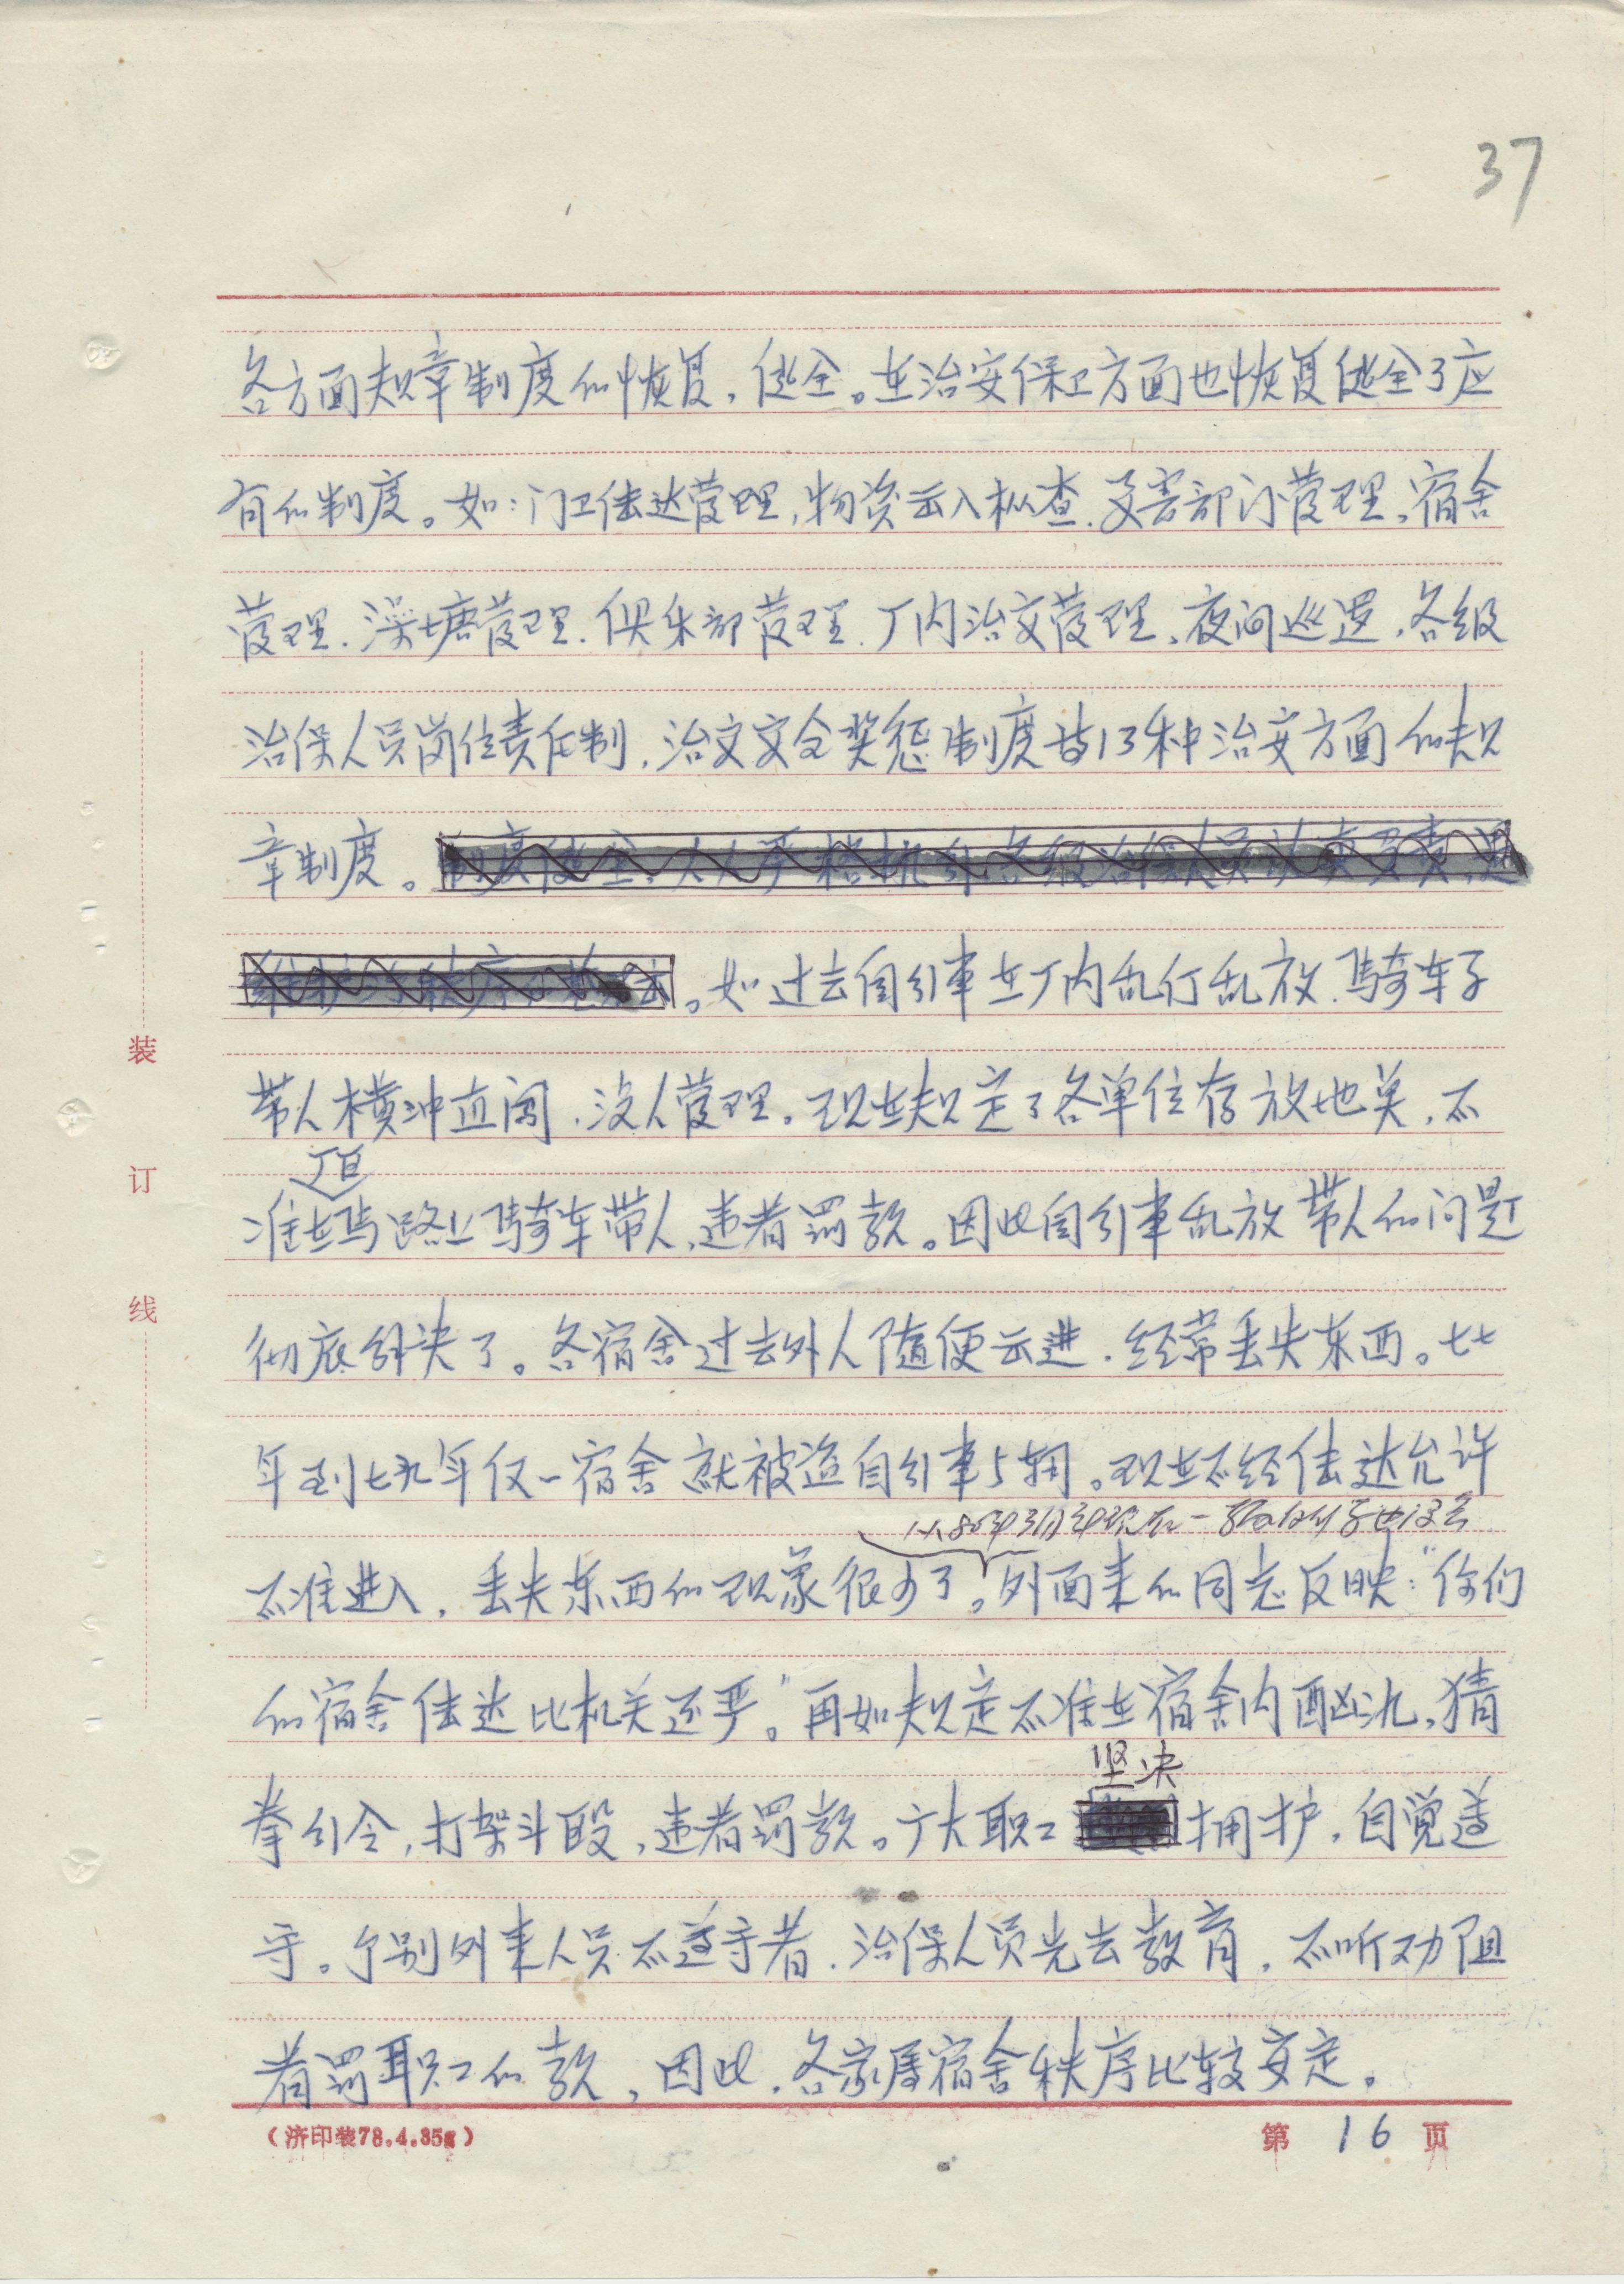 37
各方面规章制度的恢复,健全。在治安保卫方面也恢复健全了应
有的制度。如:门卫传达管理,物资出入检查.要害部门管理,宿舍
管理.澡塘管理.俱乐部管理.厂内治交管理,夜间巡逻,各级
治保人员岗位责任制,治交安全奖惩制度等13种治安方面的规
章制度。
。如过去自行车在厂内乱行乱放.骑车子
带人横冲直闯.没人管理。现在规定了各单位存放地美,不
厂区
准在马路上骑车带人,违者罚款。因此自行车乱放带人的问题
彻底解决了。各宿舍过去外人随便出进.经常丢失东西。七七
年到七九年仅一宿舍就被盗自行车5辆。现在不经传达允许
从80年3月
不准进入,丢失东西的现象很少了。外面来的同志反映:"你们
的宿舍传达比机关还严"。再如规定不准在宿舍内酗酒,猜
坚决
拳行令,打架斗殴,违者罚款。广大职工拥护,自觉遵
守。个别外来人员不遵守者.治保人员先去教育,不听劝阻
者罚职工的款,因此.各家属宿舍秩序比较安定。
装
订
线
(济印装78.4.85g)
第 16 页